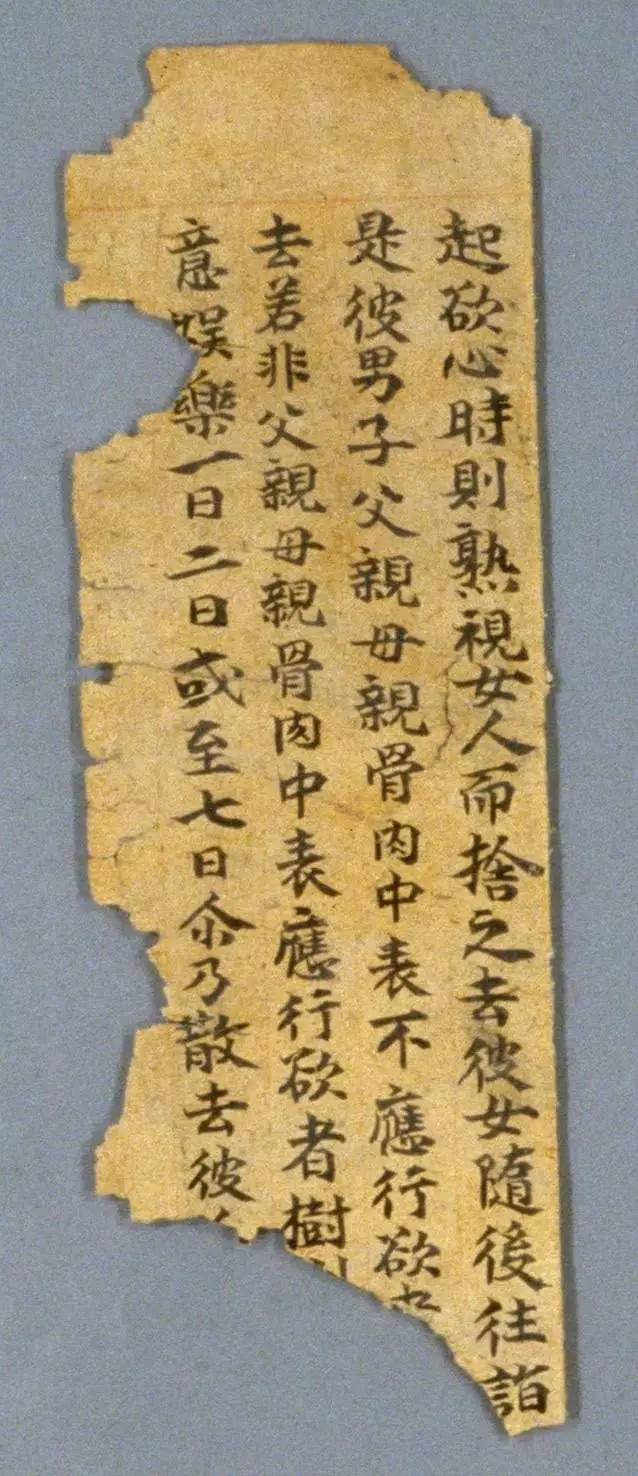 起欲心時則熟視女人而捨之去彼女隨後往詣
是彼男子父親母親骨肉中表不應行欲
去若非父親母親骨肉中表應行欲者樹
意娱樂一日二日或至七日尒乃散去彼